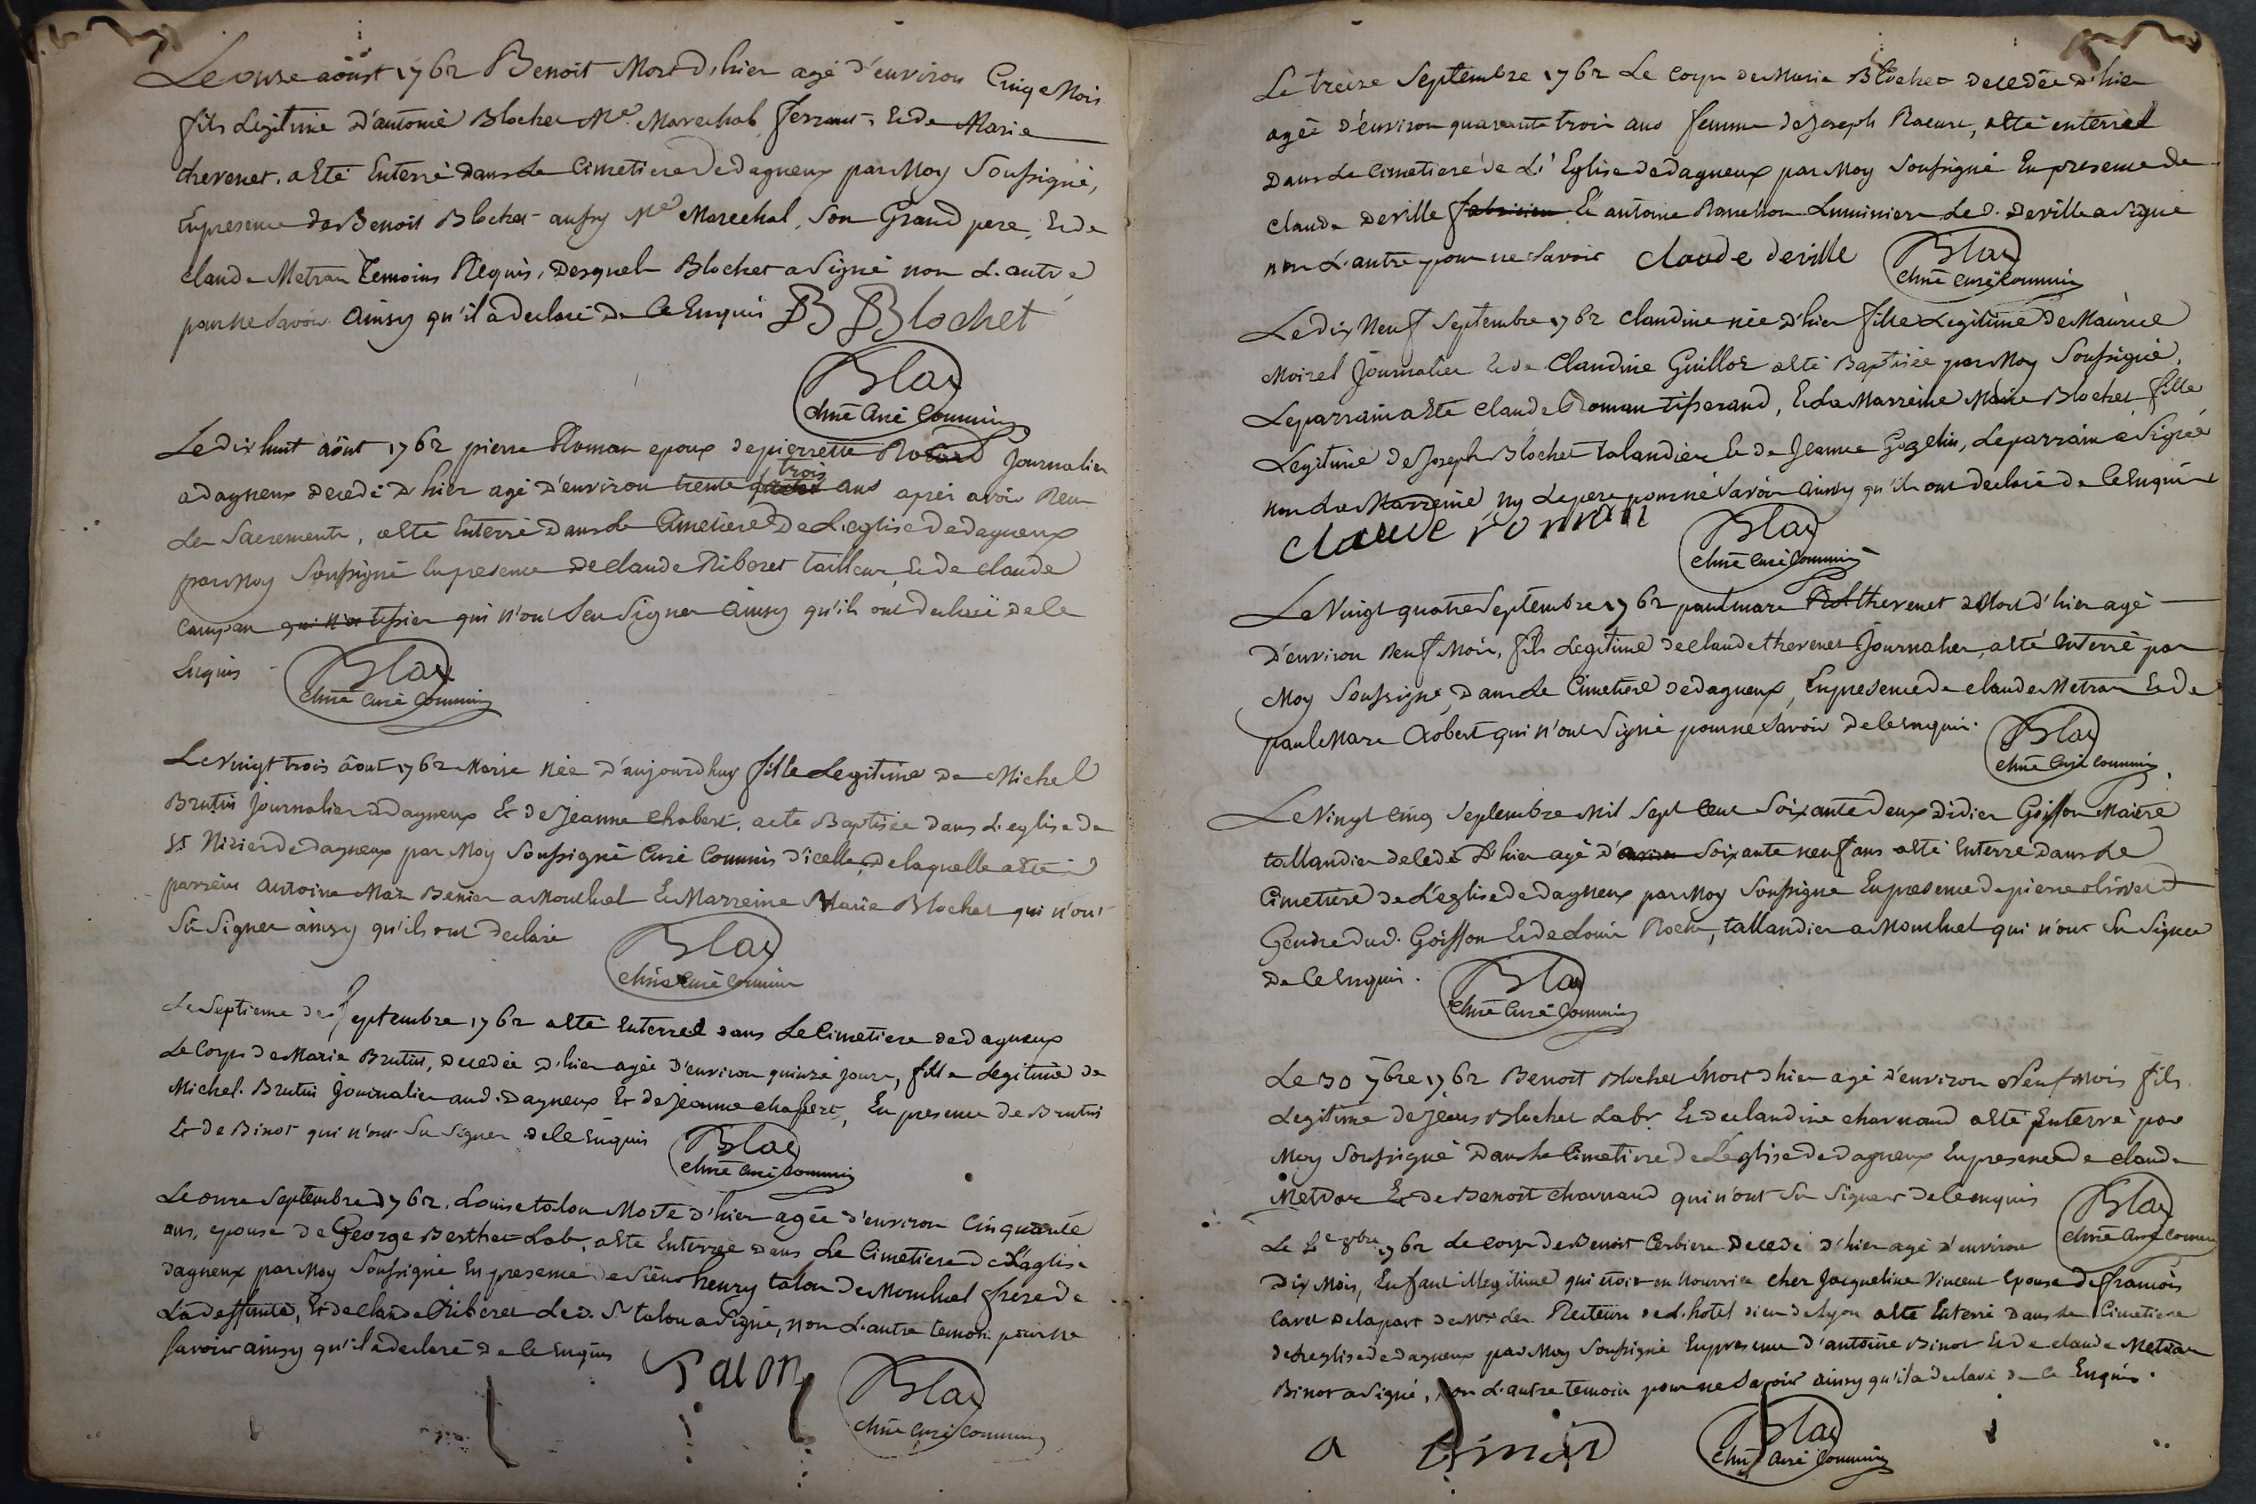 Le onze aöust 1762 Benoit Mort d'hier agé d'environ Cinq Mois
fils Legitime d'antoine Blochet Me. Marechal ferrant, Et de Marie
thevenet, a Eté Enterré dans Le Cimetiere de dagneux par Moy Soussigné,
En presence de Benoit Blochet aussy Me Marechal, Son Grand pere, Et de
claude Metran Temoins Requis, desquels Blochet a Signé non L'autre
pour ne Savoir Ainsy qu'il a declaré De Ce Enquis B Blochet
Blay
chne Curé Commis
Le dix huit aöut 1762 pierre Roman epoux de pierrette Journalier
a dagneux decedé d'hier agé d'environ trente trois ans aprés avoir Reçu
Les Sacrements, a Eté Enterré dans Le Cimetiere de L'eglise de dagneux
par Moy Soussigné En presence de claude Riboret tailleur, Et de claude
Campan tissier qui n'ont Seu Signer Ainsy qu'ils ont declaré de Ce
Enquis
Blay
chne Curé Commis
Le Vingt trois aöut 1762 Marie née d'aujourdhuy fille Legitime de Michel
Brutin Journalier a dagneux Et de Jeanne chabert, a eté Baptisée dans L'eglise de
St Nizier de dagneux par Moy Soussigné Curé Commis d'icelle, de laquelle a Eté
parrain Antoine Benier a Montluel Et Marreine Marie Blochet qui n'ont
Sü Signer ainsy qu'ils ont declaré
Blay
chne Curé Commis
Le Septieme de Septembre 1762 a Eté Enterreé dans Le Cimetiere de dagneux
Le Corps de Marie Brutin, decedée d'hier agée d'environ quinze jours, fille Legitime de
Michel Brutin Journalier aud. Dagneux Et de Jeanne chabert, En presence de Brutin
Et de Binot qui n'ont Su Signer de Ce Enquis
Blay
chne Curé Commis
Le onze Septembre 1762, Louise talon Morte d'hier agée d'environ Cinquante
ans, epouse de George Berthet Lab., a Eté Enterrée dans Le Cimetiere de L'eglise
dagneux par Moy Soussigné En presence de Sieur henry talon de Montluel frere de
La deffunte, Et de claude Riboret Led. Sr talon a Signé, non L'autre temoin pour ne
Savoir ainsy qu'il a declaré de Ce Enquis
Talon
Blay
chne Curé Commis
Le treize Septembre 1762 Le Corps de Marie Blochet decedée d'hier
agée d'environ quarante trois ans femme de Joseph, a Eté enterreé
Dans Le Cimetiere de L'Eglise de dagneux par Moy Soussigné En presence de
claude deville Et antoine Luminiers Le d. deville a Signé
non L'autre pour ne Savoir claude deville
Blay
chne Curé Commis
Le dix Neuf Septembre 1762 claudine née d'hier fille Legitime de Maurice
Moirel Journalier Et de Claudine Guillot a Eté Baptisée par Moy Soussigné,
Le parrain a Eté claude Roman tisserand, Et La Marreine Marie Blochet fille
Legitime de Joseph Blochet talandier Et de Jeanne Gozelin, Le parrain a Signé
non La Marreine ny Le pere pour ne Savoir Ainsy qu'ils ont declaré de Ce Enquis
claude roman
Blay
chne Curé Commis
Le Vingt quatre Septembre 1762 paul marc thevenet Mort d'hier agé
D'environ Neuf Mois, fils Legitime de claude thevenet Journalier, a Eté Enterré par
Moy Soussigné, dans Le Cimetiere de dagneux, En presence de claude Metran Et de
paul Marc Robert qui n'ont Signé pour ne Savoir de Ce enquis.
Blay
chne Curé Commis
Le Vingt Cinq Septembre Mil Sept Cent Soixante deux Didier Goisson Maitre
tallandier decedé d'hier agé d' Soixante neuf ans a Eté Enterré dans Le
Cimetiere de L'eglise de dagneux par Moy Soussigné En presence de pierre olivier
Gendre dud. Goisson Et de Louis Roche, tallandier a Montluel qui n'ont Su Signer
de Ce Enquis.
Blay
chne Curé Commis
Le 30 7bre 1762 Benoit Blochet Mort d'hier agé d'environ Neuf Mois fils
Legitime de Jean Blochet Labr. Et de claudine charnand a Eté Enterré par
Moy Soussigné Dans Le Cimetiere de L'eglise de dagneux En presence de claude
Metran Et de Benoit charnand qui n'ont Su Signer de Ce enquis
Blay
chne Curé Commis
Le 8bre 1762 Le Corps de Benoit Cerbiere Decedé d'hier agé d'environ
Dix Mois, Enfant illegitime qui étoit en Nourrice chez Jacqueline Vincent Epouse de francois
de la part de Mrs Les Recteurs de L'hotel dieu de Lyon a Eté Enterré Dans Le Cimetiere
de L'eglise de dagneux par Moy Soussigné En presence d'antoine Binot Et de claude Metran
Binot a Signé, non L'autre temoin pour ne Savoir ainsy qu'il a declaré de Ce Enquis.
a Binot
Blay
chne Curé Commis